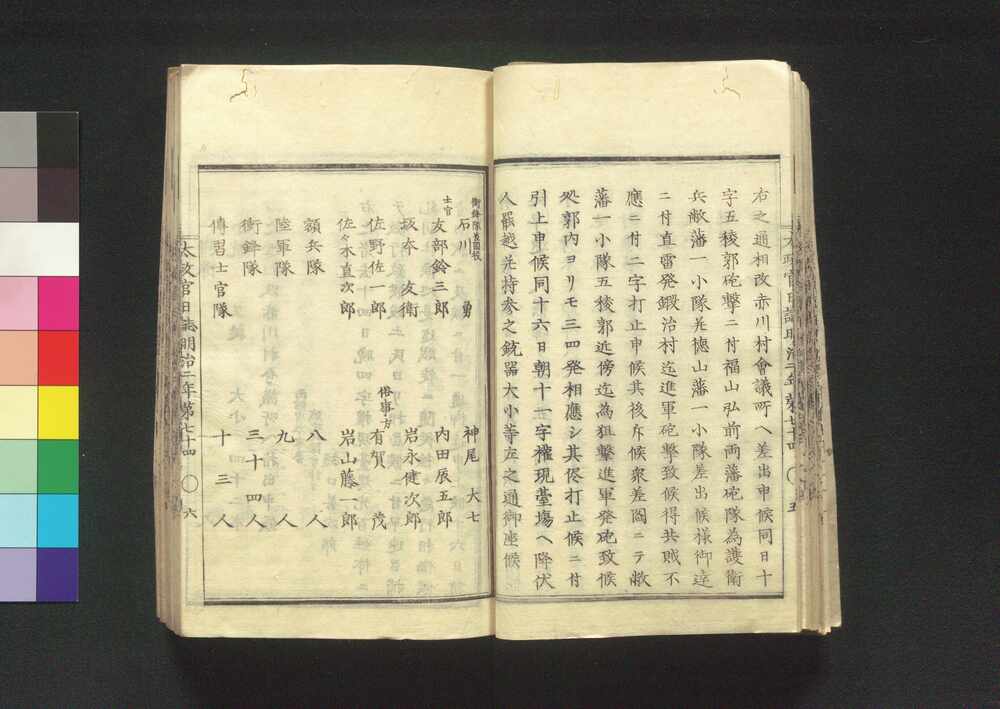 右之通相改赤川村會議所ヘ差出申候同日十
字五稜郭砲撃ニ付福山弘前両藩砲隊為護衛
兵敝藩一小隊并徳山藩一小隊差出候様御達
ニ付直當発鍛治村迄進軍砲撃致候得共賊不
應ニ付二字打止申候其後斥候衆差図ニテ敝
藩一小隊五稜郭近傍迄為狙撃進軍発砲致候
処郭内ヨリモ三四発相應シ其侭打止候ニ付
引上申候同十六日朝十一字権現臺場ヘ降伏
人罷越并持参之銃器大小等左之通御座候
太政官日誌明治二年第七十四 五
衝鋒隊差図役
石川 勇 神尾 大七
士官
友部鈴三郎 内田辰五郎
坂本 友衛 岩永健次郎
佐野佐一郎 俗事方 有賀 茂
佐々木直次郎 岩山藤一郎
額兵隊 八人
陸軍隊 九人
衝鋒隊 三十四人
傳習士官隊 十三人
太政官日誌明治二年第七十四 六